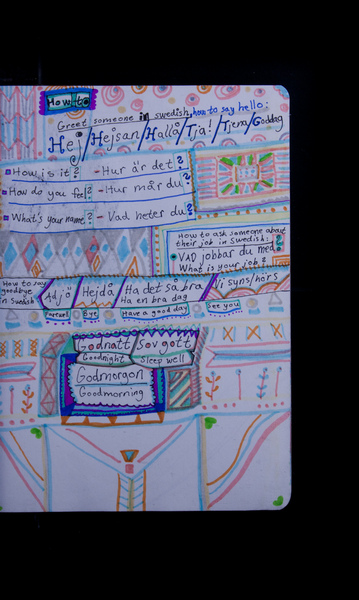 How to
Greet someone in swedish, how to say hello:
Hej/Hejsan/Hallå/Tja!/Tjena/Goddag
How is it? - Hur är det?
How do you feel? - Hur mår du?
What's your name? - Vad heter du?
How to ask someone about
their job in Swedish:
VAD jobbar du med?
What is your job?
How to say
goodbye
in Swedish
Adjö/Hejdå/Ha det så bra/Vi syns/hörs
Ha en bra dag
Farwel Bye Have a good day See you
Godnatt/Sov gott
Goodnight Sleep well
Godmorgon
Goodmorning